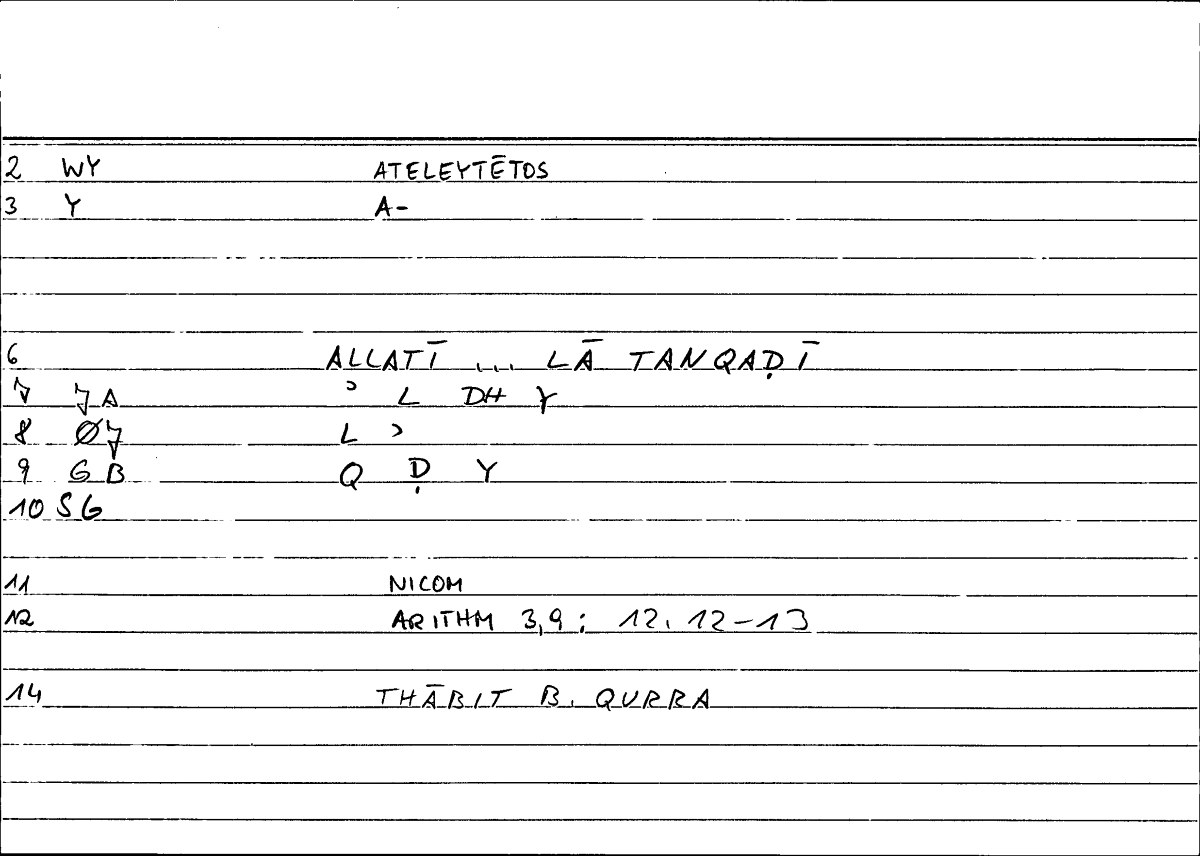 2 WY ATELEYTĒTOS
3 Y A-
6 ALLATĪ ... LĀ TANQAḌĪ
7 7A ʾ L DH Y
8 Ø7 L ʾ
9 GB Q Ḍ Y
10 SG
11 NICOM
12 ARITHM 3,9; 12.12-13
14 THĀBIT B. QURRA